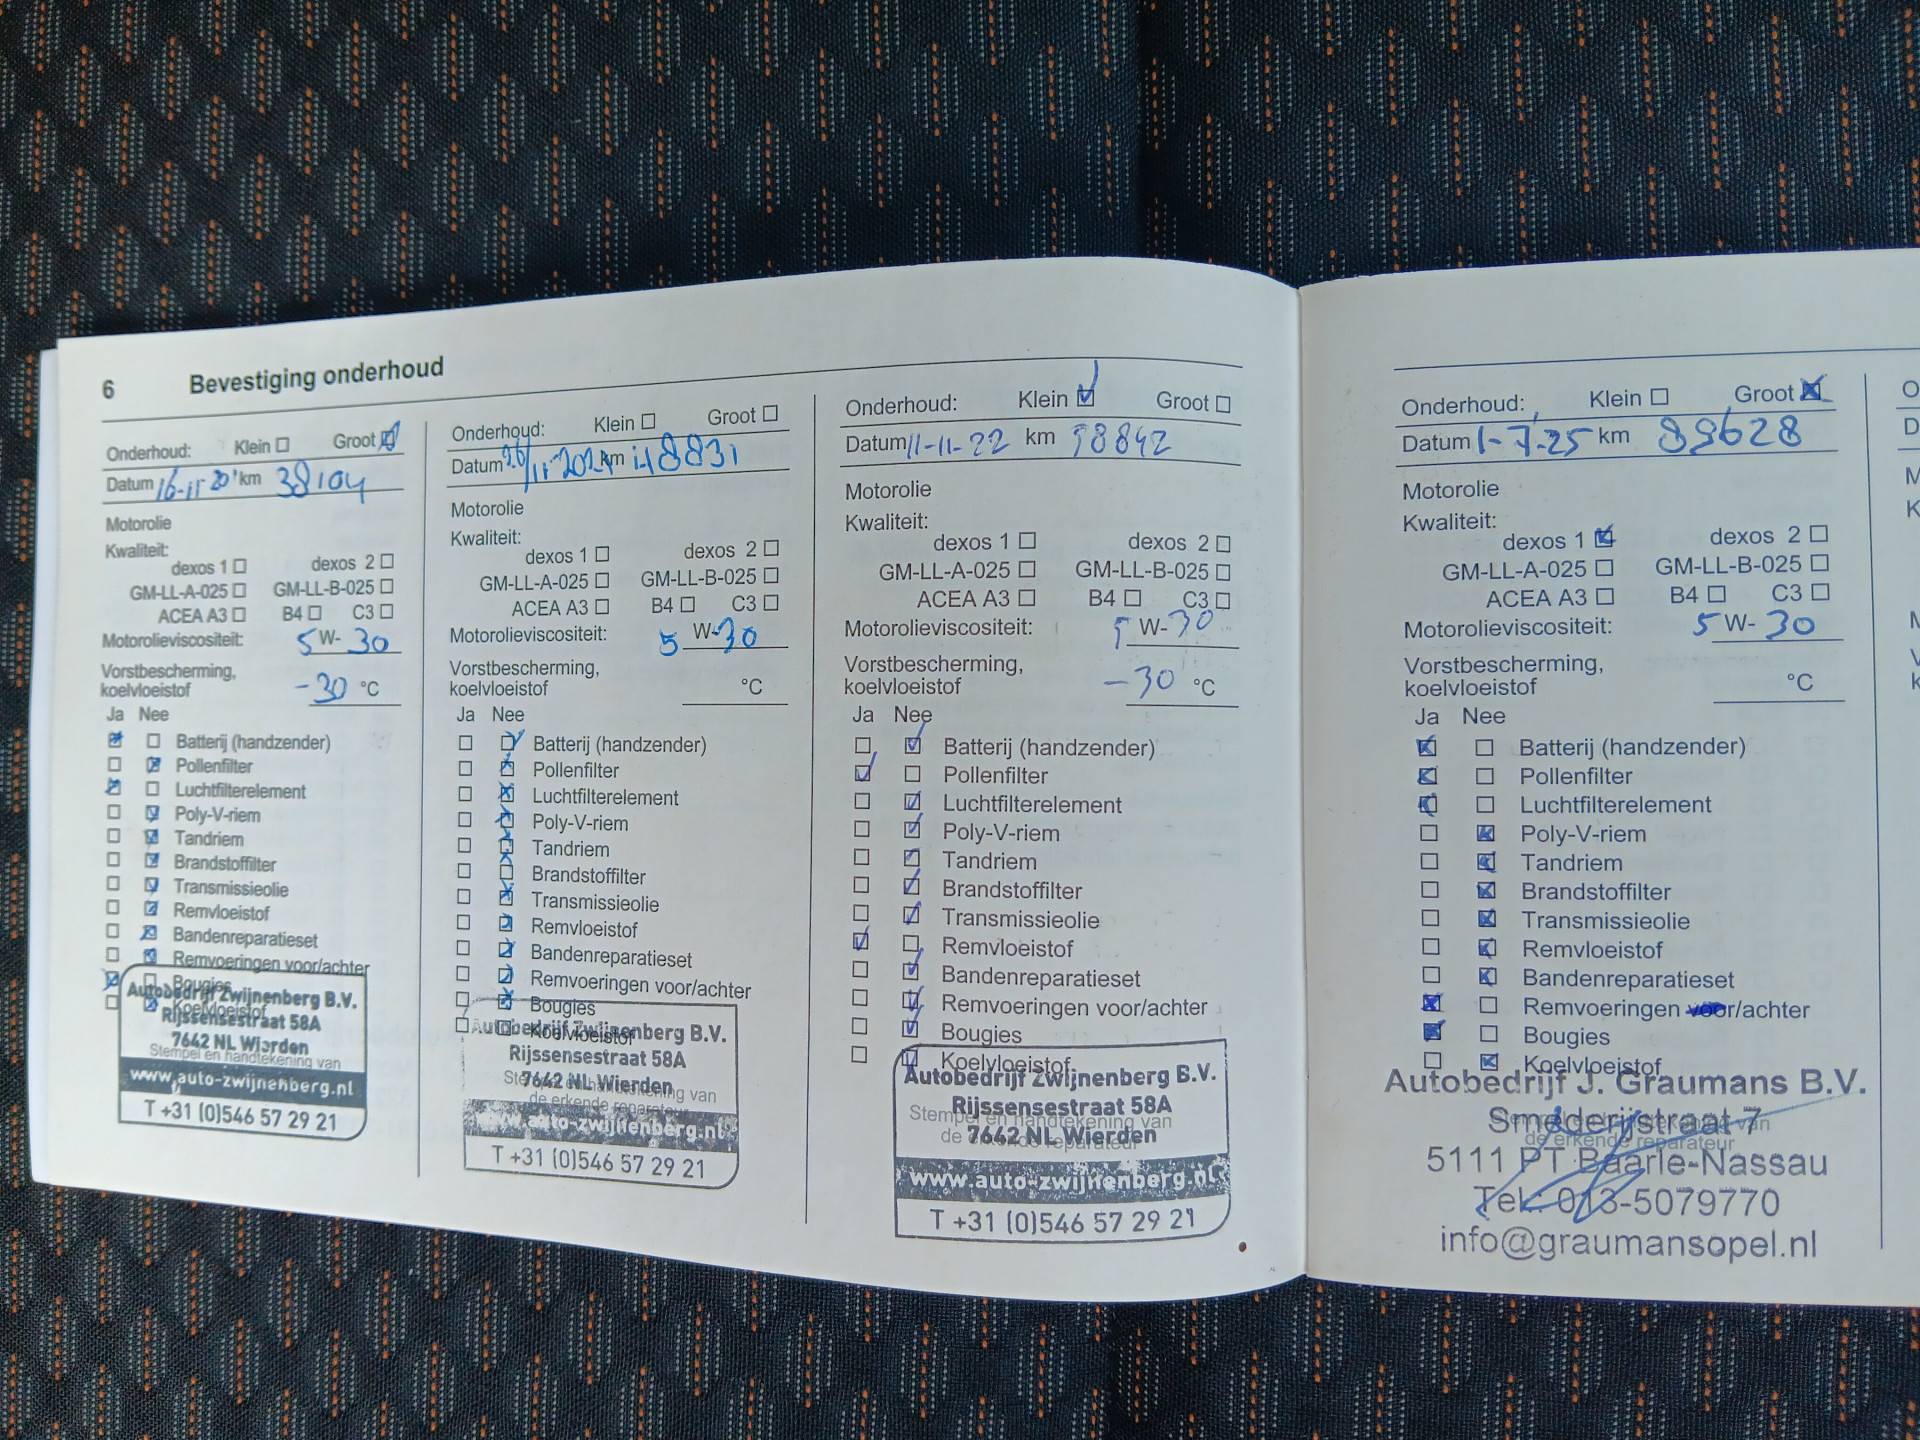 6 Bevestiging onderhoud
Onderhoud: Klein Groot
Datum 16-11-20 km 38104
Motorolie
Kwaliteit:
dexos 1 dexos 2
GM-LL-A-025 GM-LL-B-025
ACEA A3 B4 C3
Motorolieviscositeit: 5 W-30
Vorstbescherming,
koelvloeistof -30 °C
Ja Nee
Batterij (handzender)
Pollenfilter
Luchtfilterelement
Poly-V-riem
Tandriem
Brandstoffilter
Transmissieolie
Remvloeistof
Bandenreparatieset
Remvoeringen voor/achter
Bougies
Koelvloeistof
Autobedrijf Zwijnenberg B.V.
Rijssensestraat 58A
7642 NL Wierden
Stempel en handtekening van
www.auto-zwijnenberg.nl
T +31 (0)546 57 29 21
Onderhoud: Klein Groot
Datum 26/11-2021 km 48831
Motorolie
Kwaliteit:
dexos 1 dexos 2
GM-LL-A-025 GM-LL-B-025
ACEA A3 B4 C3
Motorolieviscositeit: 5 W-30
Vorstbescherming,
koelvloeistof °C
Ja Nee
Batterij (handzender)
Pollenfilter
Luchtfilterelement
Poly-V-riem
Tandriem
Brandstoffilter
Transmissieolie
Remvloeistof
Bandenreparatieset
Remvoeringen voor/achter
Bougies
Koelvloeistof
Autobedrijf Zwijnenberg B.V.
Rijssensestraat 58A
7642 NL Wierden
Stempel en handtekening van
de erkende reparateur
www.auto-zwijnenberg.nl
T +31 (0)546 57 29 21
Onderhoud: Klein Groot
Datum 11-11-22 km 58842
Motorolie
Kwaliteit:
dexos 1 dexos 2
GM-LL-A-025 GM-LL-B-025
ACEA A3 B4 C3
Motorolieviscositeit: 5 W-30
Vorstbescherming,
koelvloeistof -30 °C
Ja Nee
Batterij (handzender)
Pollenfilter
Luchtfilterelement
Poly-V-riem
Tandriem
Brandstoffilter
Transmissieolie
Remvloeistof
Bandenreparatieset
Remvoeringen voor/achter
Bougies
Koelvloeistof
Autobedrijf Zwijnenberg B.V.
Rijssensestraat 58A
Stempel en handtekening van
7642 NL Wierden
de erkende reparateur
www.auto-zwijnenberg.nl
T +31 (0)546 57 29 21
Onderhoud: Klein Groot
Datum 1-7-25 km 89628
Motorolie
Kwaliteit:
dexos 1 dexos 2
GM-LL-A-025 GM-LL-B-025
ACEA A3 B4 C3
Motorolieviscositeit: 5 W-30
Vorstbescherming,
koelvloeistof °C
Ja Nee
Batterij (handzender)
Pollenfilter
Luchtfilterelement
Poly-V-riem
Tandriem
Brandstoffilter
Transmissieolie
Remvloeistof
Bandenreparatieset
Remvoeringen voor/achter
Bougies
Koelvloeistof
Autobedrijf J. Graumans B.V.
Smederijstraat 7
de erkende reparateur
5111 PT Baarle-Nassau
Tel: 013-5079770
info@graumansopel.nl